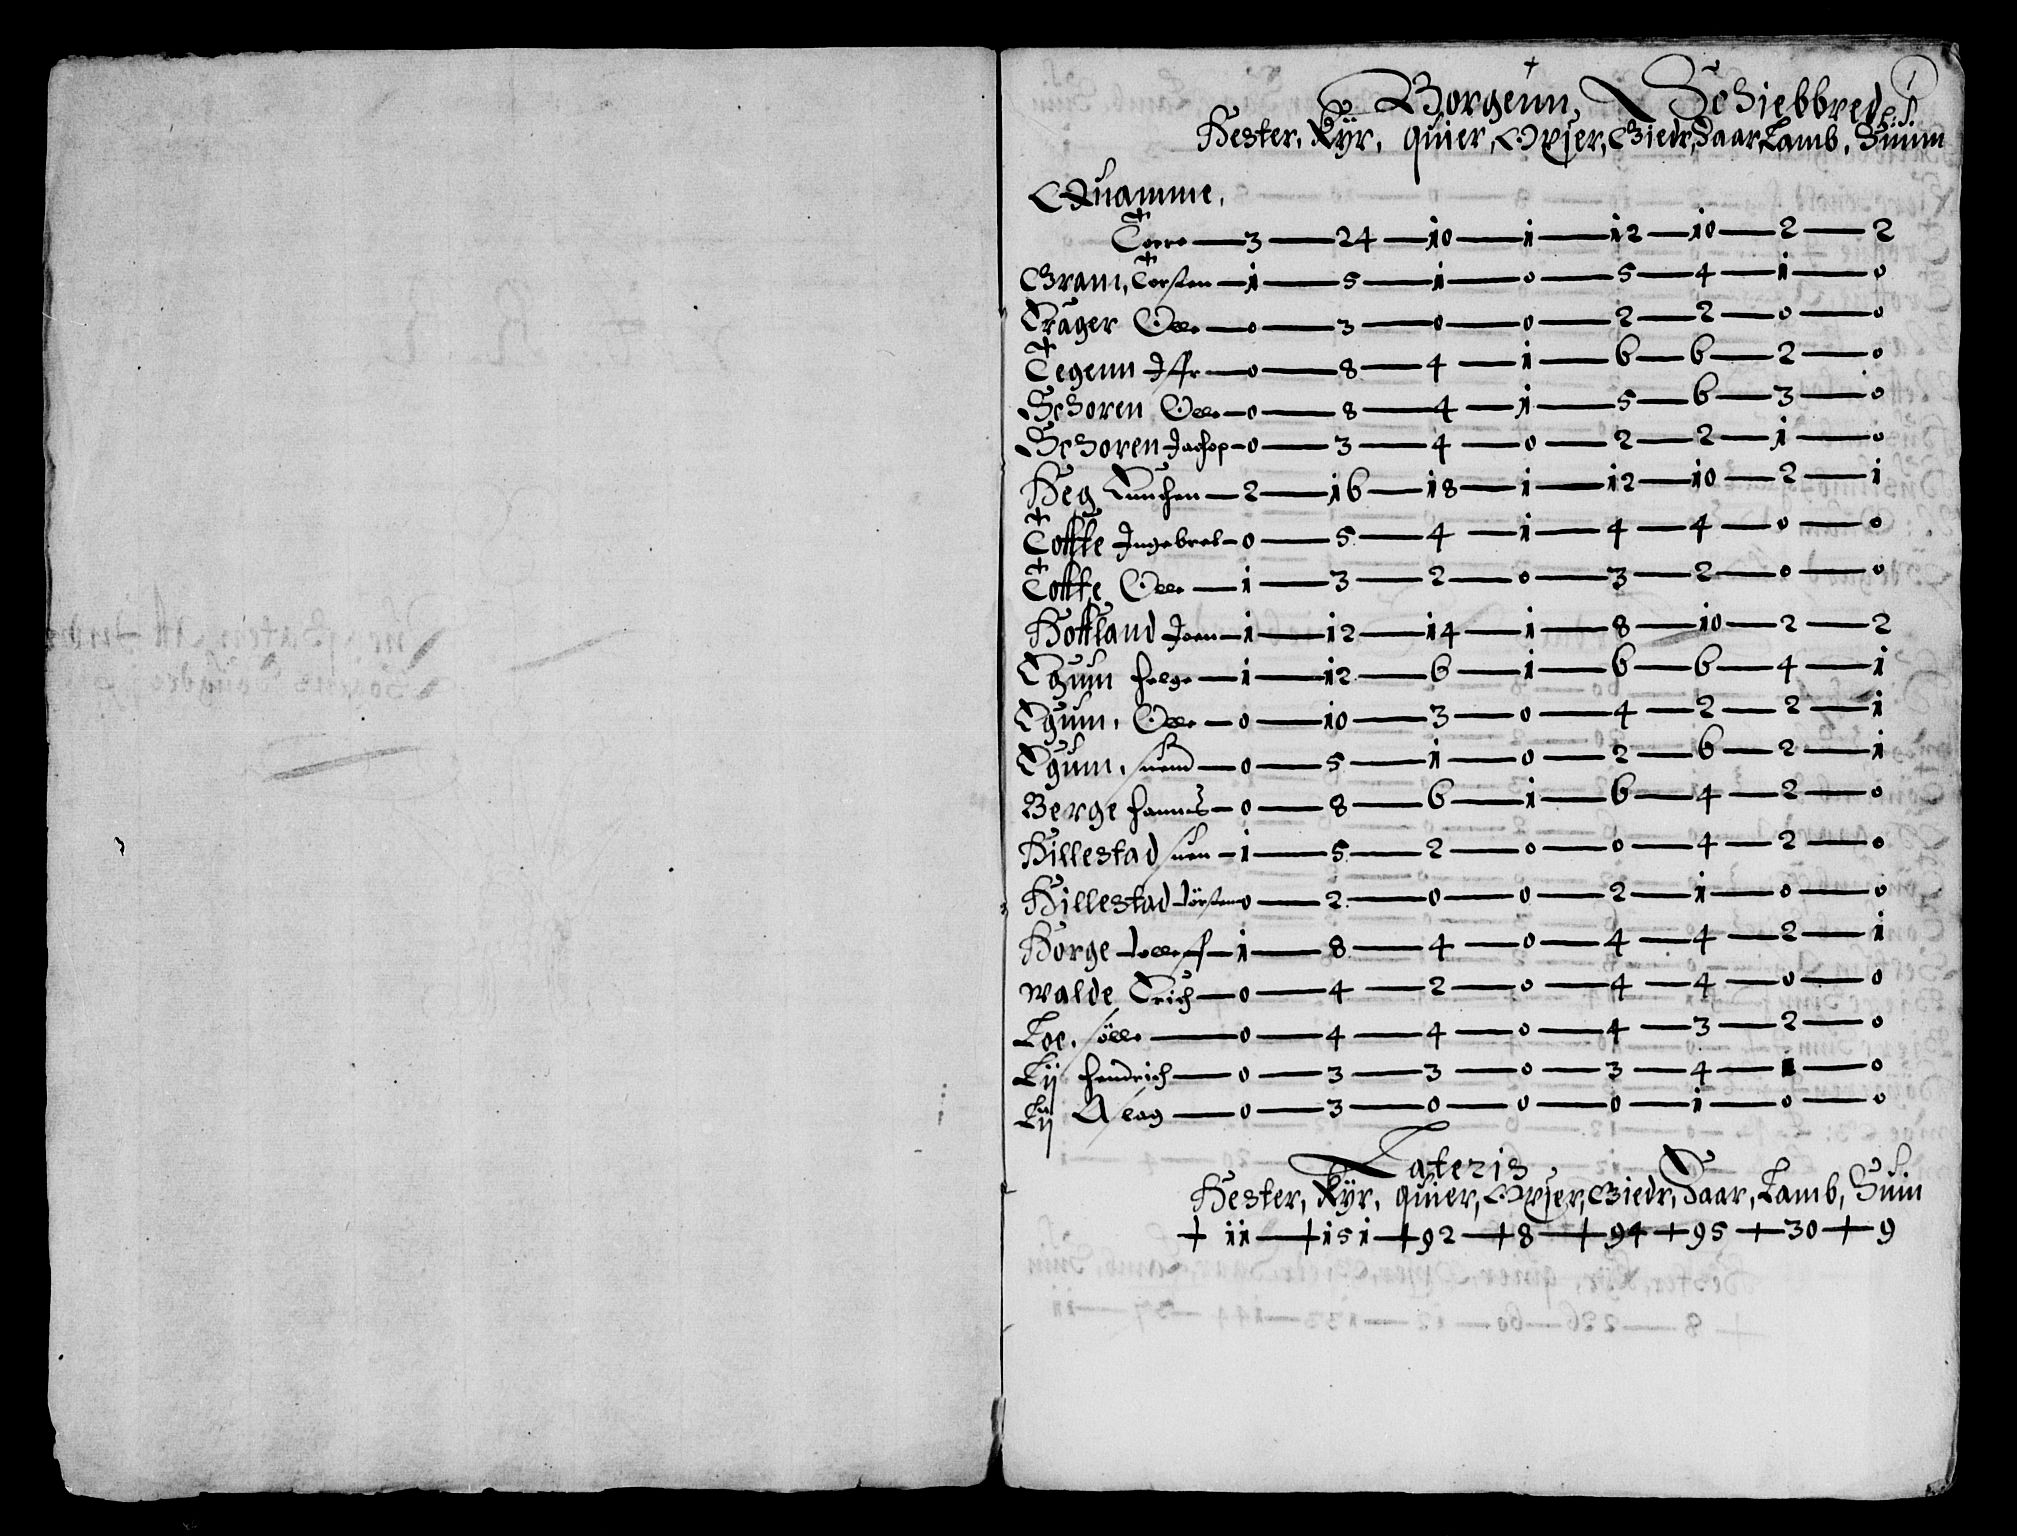 1
Borgeun, Schiebbrede.
Hester, Kyr, quier, Oxser, Giedr, Saar, Lamb, Suinn
Quamme,
Torre — 3 — 24 — 10 — 1 — 12 — 10 — 2 — 2
Gram, Torsten — 1 — 5 — 1 — 0 — 5 — 4 — 1 — 0
Trager Olle — 0 — 3 — 0 — 0 — 2 — 2 — 0 — 0
Tegenn Iffr — 0 — 8 — 4 — 1 — 6 — 6 — 2 — 0
Schoren Olle — 0 — 8 — 4 — 1 — 5 — 6 — 3 — 0
Schoren Jachop — 0 — 3 — 4 — 0 — 2 — 2 — 1 — 0
Heg — 2 — 16 — 18 — 1 — 12 — 10 — 2 — 1
Toffte Ingebret — 0 — 5 — 4 — 1 — 4 — 4 — 0 — 0
Toffte Olle — 1 — 3 — 2 — 0 — 3 — 2 — 0 — 0
Hoffland Joen — 1 — 12 — 14 — 1 — 8 — 10 — 2 — 2
Egum Helge — 1 — 12 — 6 — 1 — 6 — 6 — 4 — 1
Egum, Olle — 0 — 10 — 3 — 0 — 4 — 2 — 2 — 1
Egum, suend — 0 — 5 — 1 — 0 — 2 — 6 — 2 — 1
Berge Hannes — 0 — 8 — 6 — 1 — 6 — 4 — 2 — 0
Hillestad suen — 1 — 5 — 2 — 0 — 0 — 4 — 2 — 0
Hillestad Törsten — 0 — 2 — 0 — 0 — 2 — 1 — 0 — 0
Horge Tolleff — 1 — 8 — 4 — 0 — 4 — 4 — 2 — 1
Walde Erich — 0 — 4 — 2 — 0 — 4 — 4 — 0 — 0
Loe, sölle — 0 — 4 — 4 — 0 — 4 — 3 — 2 — 0
Lij Hendrich — 0 — 3 — 3 — 0 — 3 — 4 — 1 — 0
Lij Aslag — 0 — 3 — 0 — 0 — 0 — 1 — 0 — 0
Lateris
Hester, Kyr, quier, Oxser, Giedr, Saar, Lamb, Suin
+ 11 — + 151 — + 92 — + 8 — + 94 — + 95 — + 30 — + 9